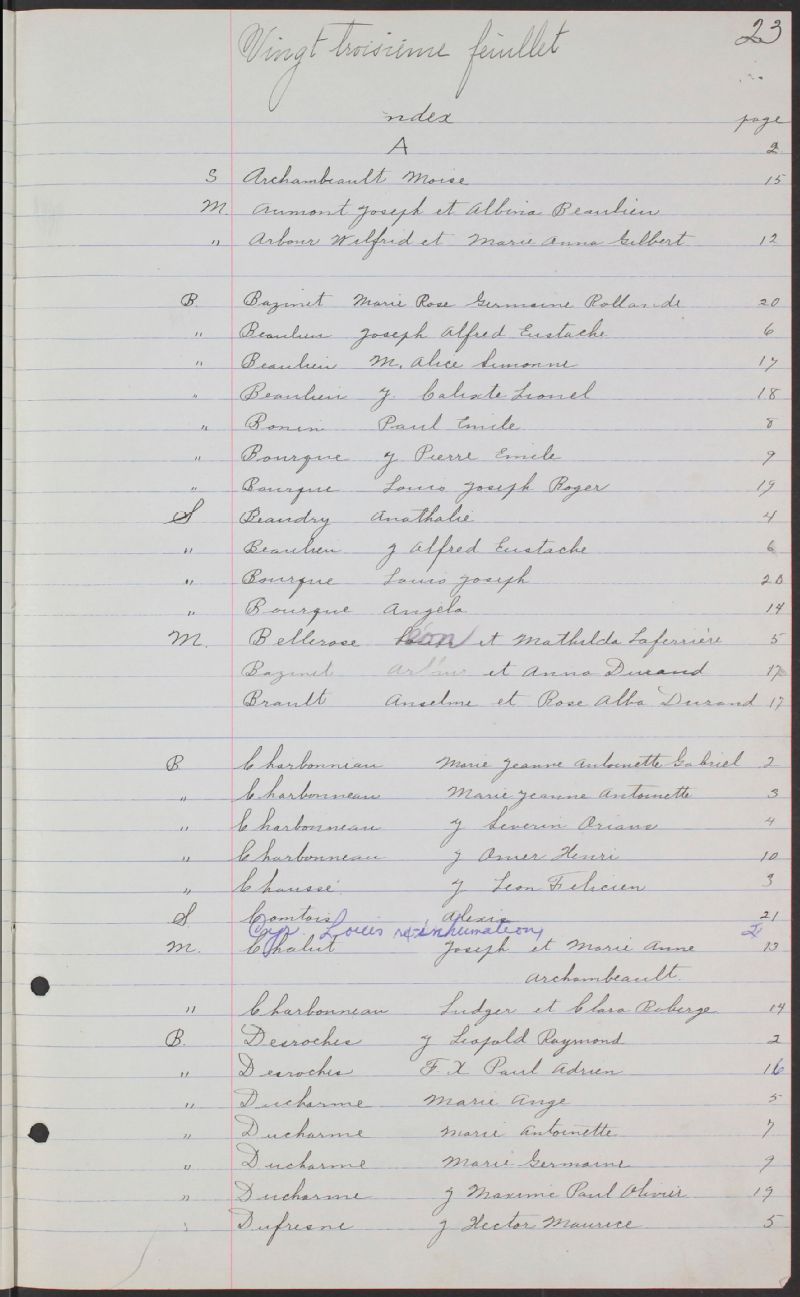 23
Vingt troisième feuillet
ndex page
A 2
S Archambeault Moise 15
M. Aumont Joseph et Albina Beaulieu
" Arbour Wilfrid et Marie Anna Gilbert 12
B. Bazinet Marie Rose Germaine Rollande 20
" Beaulieu Joseph Alfred Eustache 6
" Beaulieu M. Alice Simonne 17
" Beaulieu J. Calixte Lionel 18
" Bonin Paul Emile 8
" Bourque J Pierre Emile 9
" Bourque Louis Joseph Roger 19
S Beaudry Anathalie 4
" Beaulieu J Alfred Eustache 6
" Bourque Louis Joseph 20
" Bourque Angéla 14
M. Bellerose Léon et Mathilda Laferrière 5
Bazinet Arthur et Anna Durand 17
Brault Anselme et Rose Alba Durand 17
B Charbonneau Marie Jeanne Antoinette Gabriel 2
" Charbonneau Marie Jeanne Antoinette 3
" Charbonneau J Severin Orians 4
" Charbonneau J Omer Henri 10
" Chaussé J Leon Felicien 3
S Comtois Alexis 21
Cyr. Louis ré-inhumation
M. Chalut Joseph et Marie Anne 13
Archambeault.
" Charbonneau Ludger et Clara Roberge 14
B. Desroches J Leopold Raymond 2
" Desroches F. X Paul Adrien 16
" Ducharme Marie Ange 5
" Ducharme Marie Antoinette 7
" Ducharme Marie Germaine 9
" Ducharme J Maxime Paul Olivier 19
" Dufresne J Hector Maurice 5